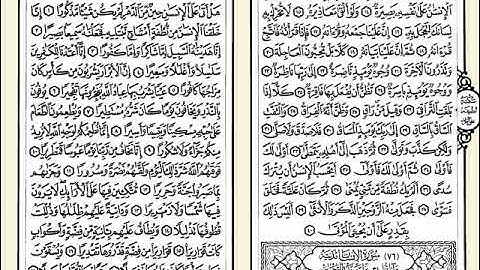 ٱلْإِنسَٰنُ عَلَىٰ نَفْسِهِۦ بَصِيرَةٌ ١٤ وَلَوْ أَلْقَىٰ مَعَاذِيرَهُۥ ١٥ لَا تُحَرِّكْ بِهِۦ
لِسَانَكَ لِتَعْجَلَ بِهِۦٓ ١٦ إِنَّ عَلَيْنَا جَمْعَهُۥ وَقُرْءَانَهُۥ ١٧ فَإِذَا قَرَأْنَٰهُ فَٱتَّبِعْ
قُرْءَانَهُۥ ١٨ ثُمَّ إِنَّ عَلَيْنَا بَيَانَهُۥ ١٩ كَلَّا بَلْ تُحِبُّونَ ٱلْعَاجِلَةَ ٢٠
وَتَذَرُونَ ٱلْءَاخِرَةَ ٢١ وُجُوهٌ يَوْمَئِذٍ نَّاضِرَةٌ ٢٢ إِلَىٰ رَبِّهَا نَاظِرَةٌ ٢٣
وَوُجُوهٌ يَوْمَئِذٍۭ بَاسِرَةٌ ٢٤ تَظُنُّ أَن يُفْعَلَ بِهَا فَاقِرَةٌ ٢٥ كَلَّآ إِذَا
بَلَغَتِ ٱلتَّرَاقِىَ ٢٦ وَقِيلَ مَنْ رَاقٍ ٢٧ وَظَنَّ أَنَّهُ ٱلْفِرَاقُ ٢٨ وَٱلْتَفَّتِ
ٱلسَّاقُ بِٱلسَّاقِ ٢٩ إِلَىٰ رَبِّكَ يَوْمَئِذٍ ٱلْمَسَاقُ ٣٠ فَلَا صَدَّقَ وَلَا صَلَّىٰ ٣١
وَلَٰكِن كَذَّبَ وَتَوَلَّىٰ ٣٢ ثُمَّ ذَهَبَ إِلَىٰٓ أَهْلِهِۦ يَتَمَطَّىٰٓ ٣٣ أَوْلَىٰ لَكَ
فَأَوْلَىٰ ٣٤ ثُمَّ أَوْلَىٰ لَكَ فَأَوْلَىٰٓ ٣٥ أَيَحْسَبُ ٱلْإِنسَٰنُ أَن يُتْرَكَ
سُدًى ٣٦ أَلَمْ يَكُ نُطْفَةً مِّن مَّنِىٍّ يُمْنَىٰ ٣٧ ثُمَّ كَانَ عَلَقَةً فَخَلَقَ
فَسَوَّىٰ ٣٨ فَجَعَلَ مِنْهُ ٱلزَّوْجَيْنِ ٱلذَّكَرَ وَٱلْأُنثَىٰٓ ٣٩ أَلَيْسَ ذَٰلِكَ
بِقَٰدِرٍ عَلَىٰٓ أَن يُحْۦِىَ ٱلْمَوْتَىٰ ٤٠
(٧٦) سورة الإنسان مدنية
هَلْ أَتَىٰ عَلَى ٱلْإِنسَٰنِ حِينٌ مِّنَ ٱلدَّهْرِ لَمْ يَكُن شَيْـًٔا مَّذْكُورًا ١ إِنَّا
خَلَقْنَا ٱلْإِنسَٰنَ مِن نُّطْفَةٍ أَمْشَاجٍ نَّبْتَلِيهِ فَجَعَلْنَٰهُ سَمِيعًۢا بَصِيرًا ٢
إِنَّا هَدَيْنَٰهُ ٱلسَّبِيلَ إِمَّا شَاكِرًا وَإِمَّا كَفُورًا ٣ إِنَّآ أَعْتَدْنَا لِلْكَٰفِرِينَ
سَلَٰسِلَا۟ وَأَغْلَٰلًا وَسَعِيرًا ٤ إِنَّ ٱلْأَبْرَارَ يَشْرَبُونَ مِن كَأْسٍ كَانَ
مِزَاجُهَا كَافُورًا ٥ عَيْنًا يَشْرَبُ بِهَا عِبَادُ ٱللَّهِ يُفَجِّرُونَهَا تَفْجِيرًا ٦ يُوفُونَ
بِٱلنَّذْرِ وَيَخَافُونَ يَوْمًا كَانَ شَرُّهُۥ مُسْتَطِيرًا ٧ وَيُطْعِمُونَ ٱلطَّعَامَ
عَلَىٰ حُبِّهِۦ مِسْكِينًا وَيَتِيمًا وَأَسِيرًا ٨ إِنَّمَا نُطْعِمُكُمْ لِوَجْهِ ٱللَّهِ لَا نُرِيدُ
مِنكُمْ جَزَآءً وَلَا شُكُورًا ٩ إِنَّا نَخَافُ مِن رَّبِّنَا يَوْمًا عَبُوسًا قَمْطَرِيرًا ١٠
فَوَقَىٰهُمُ ٱللَّهُ شَرَّ ذَٰلِكَ ٱلْيَوْمِ وَلَقَّىٰهُمْ نَضْرَةً وَسُرُورًا ١١ وَجَزَىٰهُم
بِمَا صَبَرُوا۟ جَنَّةً وَحَرِيرًا ١٢ مُّتَّكِـِٔينَ فِيهَا عَلَى ٱلْأَرَآئِكِ لَا يَرَوْنَ
فِيهَا شَمْسًا وَلَا زَمْهَرِيرًا ١٣ وَدَانِيَةً عَلَيْهِمْ ظِلَٰلُهَا وَذُلِّلَتْ
قُطُوفُهَا تَذْلِيلًا ١٤ وَيُطَافُ عَلَيْهِم بِـَٔانِيَةٍ مِّن فِضَّةٍ وَأَكْوَابٍ
كَانَتْ قَوَارِيرَا۠ ١٥ قَوَارِيرَا۟ مِن فِضَّةٍ قَدَّرُوهَا تَقْدِيرًا ١٦ وَيُسْقَوْنَ